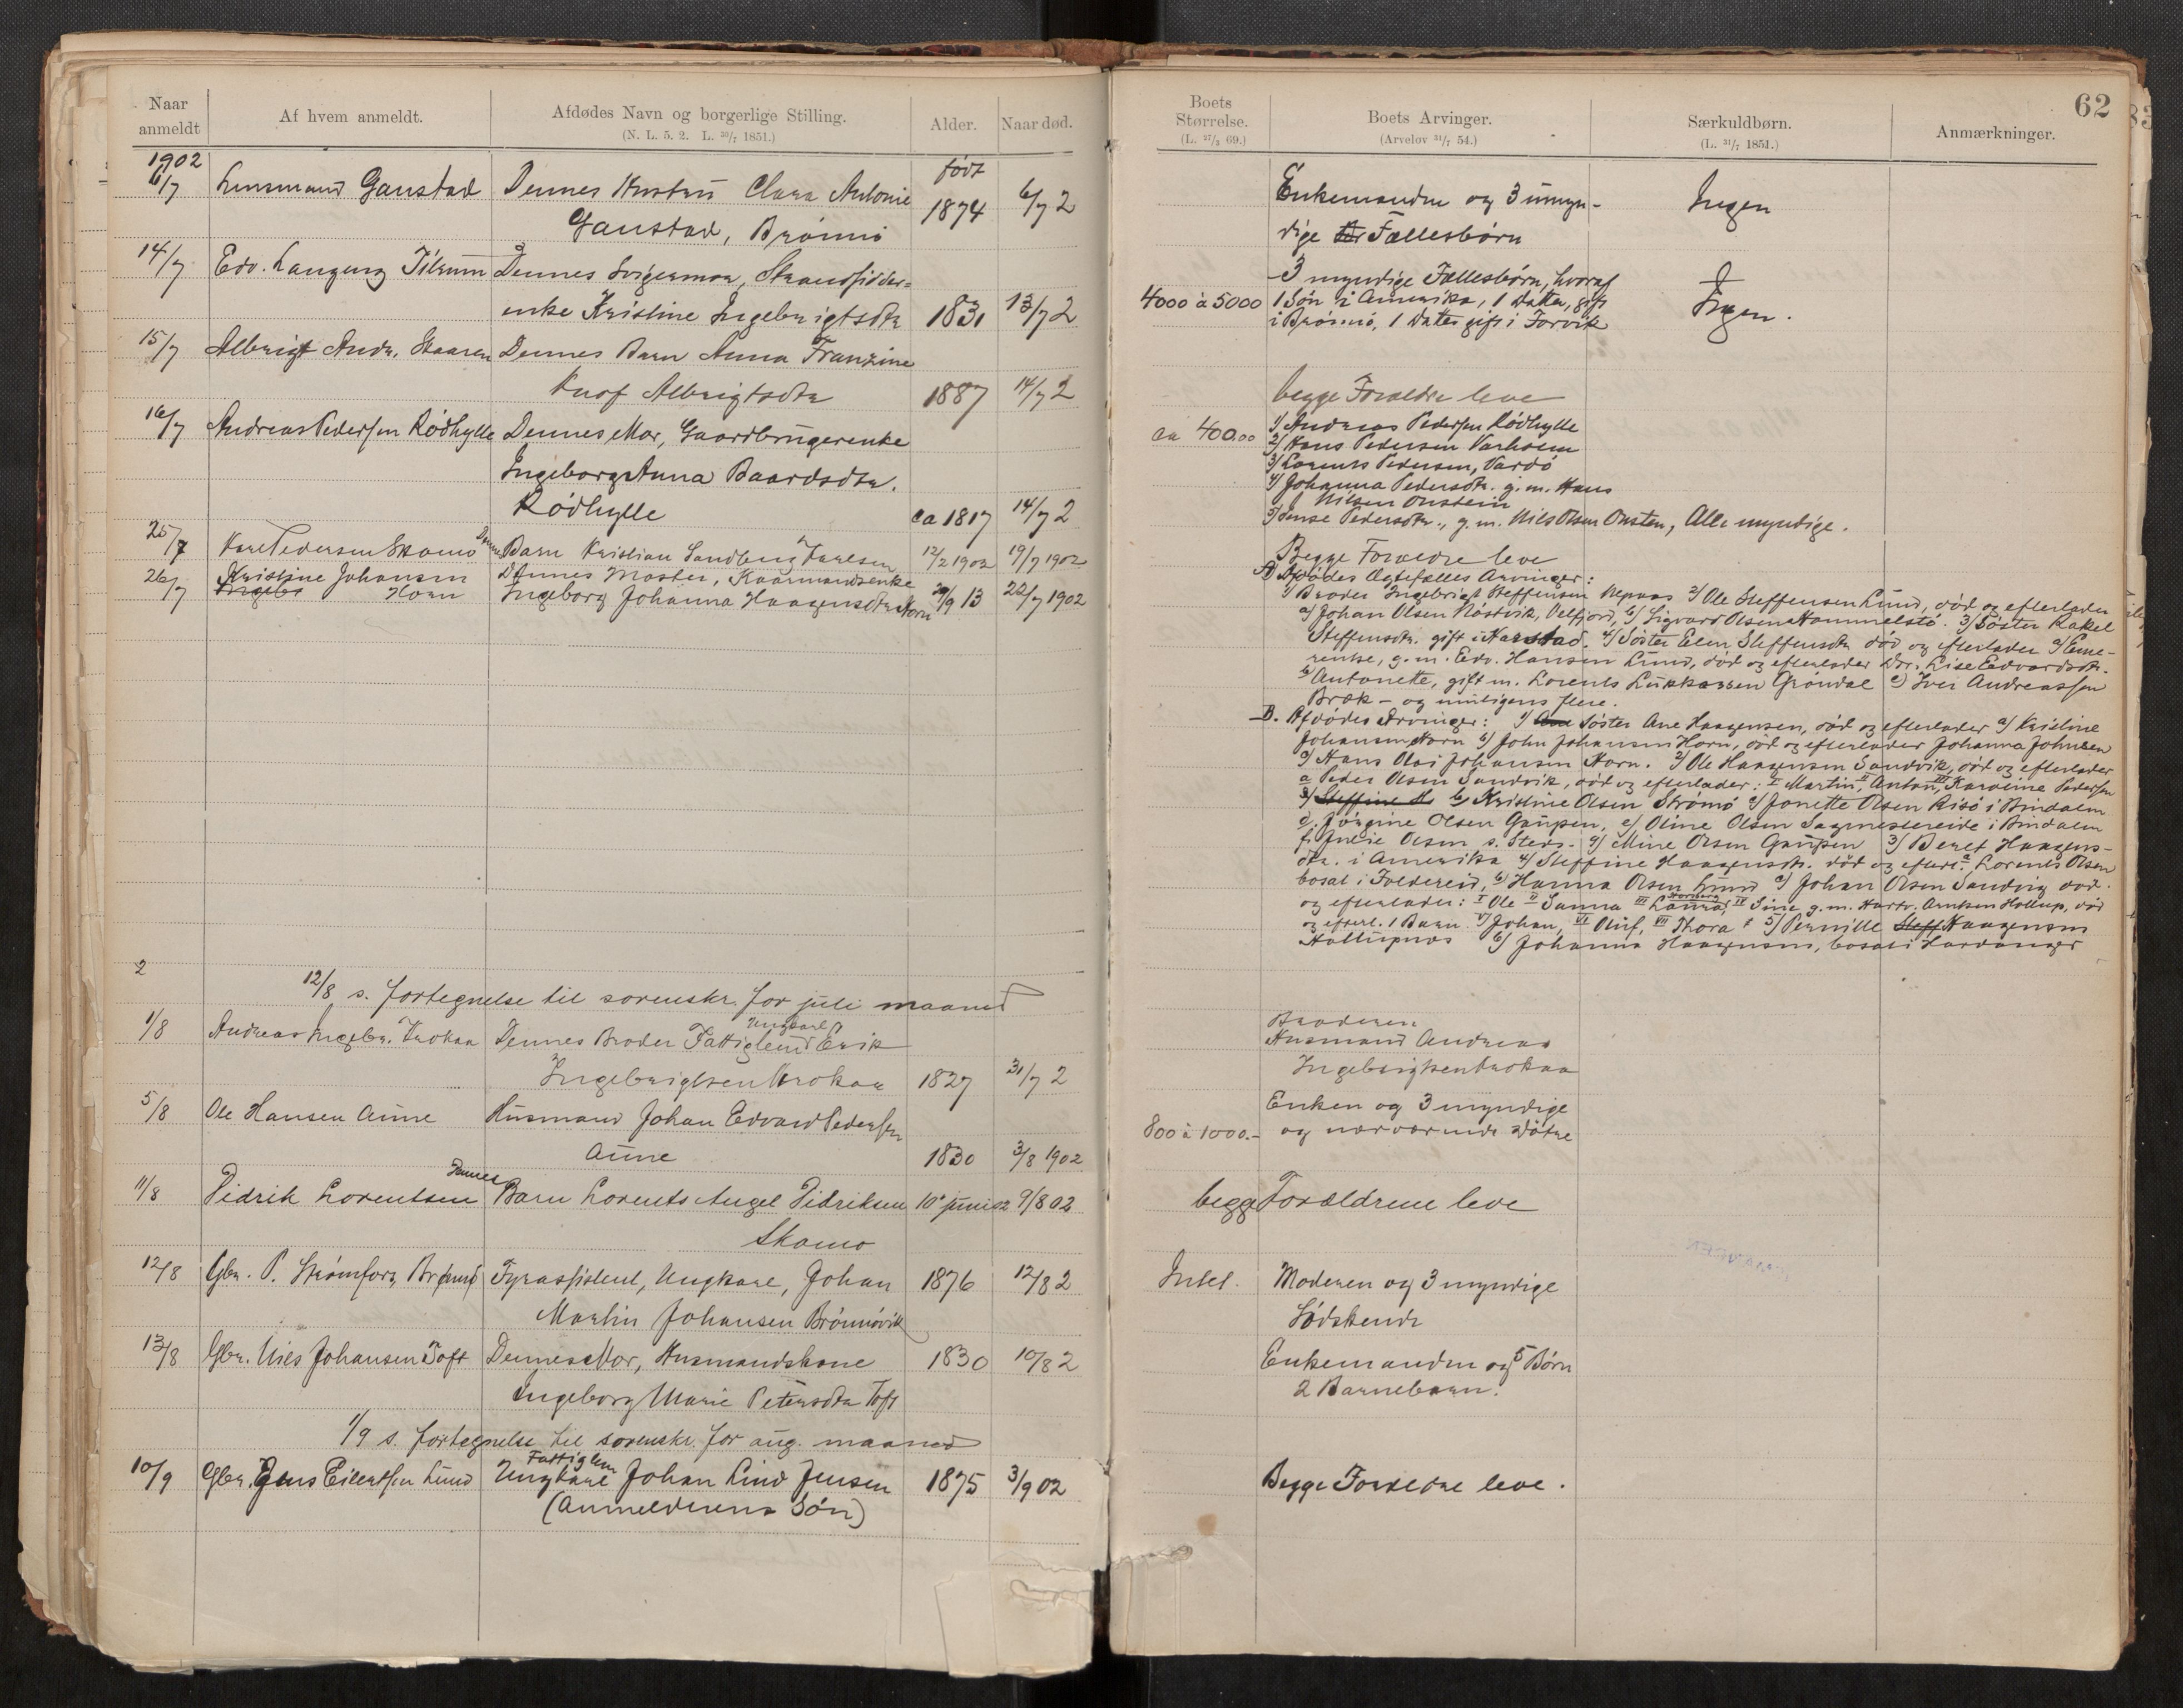 Naar anmeldt
Af hvem anmeldt.
Afdødes Navn og borgerlige Stilling.
(N. L. 5. 2. L. 30/7 1851.)
Alder.
Naar død.
1902
født
6/7 Lensmand Gaustad Dennes Hustru Clara Antonie
Gaustad, Brønnø 1874 6/7 2
14/7 Edv. Langeng Tilrum Dennes Svigermor, Strandsidder-
enke Kristine Ingebrigtsdtr 1831 13/7 2
15/7 Albrigt Andr. Skaaren Dennes Barn Anna Franzine
Knof Albrigtsdtr 1887 14/7 2
16/7 Andreas Pedersen Rødhylle Dennes Mor, Gaardbrugerenke
Ingeborg Anna Baardsdtr.
Rødhylle ca 1817 14/7 2
25/7 Karl Pedersen Skomo Dennes Barn Kristian Sandberg Karlsen 12/2 1902 19/7 1902
26/7 Kristine Johansen Dennes Moster, Kaarmandsenke
Ingebr Horn Ingeborg Johanna Haagensdtr Horn 29/9 13 22/7 1902
2
12/8 s. fortegnelse til sorenskr. for juli maaned
1/8 Andreas Ingebr. Krokaa Dennes Broder Fattiglem Ungkarl Erik
Ingebrigtsen Krokaa 1827 31/7 2
5/8 Ole Hansen Aune Husmand Johan Edvard Pedersen
Aune 1830 3/8 1902
11/8 Didrik Lorentsen Dennes Barn Lorents Angel Didriksen 10 juni 02 9/8 02
Skomo
12/8 Gbr. P. Strømforg Brønnø Fyrassistent, Ungkarl, Johan 1876 12/8 2
Martin Johansen Brønnøvik
13/8 Gbr. Nils Johansen Toft Dennes Mor, Husmandskone 1830 10/8 2
Ingeborg Marie Petersdtr Toft
1/9 s. fortegnelse til sorenskr. for aug. maaned
Fattiglem
10/9 Gbr. Jens Eilertsen Lund Ungkarl Johan Lind Jensen 1875 3/9 02
(Anmelderens Søn)
62
Boets Størrelse.
(L. 27/3 69.)
Boets Arvinger.
(Arvelov 31/7 54.)
Særkuldbørn.
(L. 31/7 1851.)
Anmærkninger.
Enkemanden og 3 umyn- Ingen
dige Fællesbørn
3 myndige Fællesbørn, hvoraf
4000 à 5000 1 Søn i Amerika, 1 Datter, gift Ingen.
i Brønnø, 1 Datter gift i Forvik
begge Forældre leve
ca 400.00 1/ Andreas Pedersen Rødhylle
2/ Hans Pedersen Varholm
3/ Lorents Pedersen, Vardø
4/ Johanna Pedersdtr. g. m. Hans
Nilsen Onstein
5/ Jense Pedersdtr., g. m. Nils Olsen Onsten, Alle myndige.
Begge Forældre leve
A) Afdødes Ægtefælles Arvinger:
1/ Broder Ingebrigt Steffensen Repnas 2/ Ole Steffensen Lund, død og efterlader
a/ Johan Olsen Nøstvik, Velfjord, b/ Sigvard Olsen Hommelstø. 3/ Søster Rakel
Steffensdtr. gift i Narstad. 4/ Søster Elen Steffensdtr død og efterlader a/ Eme-
renke, g. m. Edv. Hansen Lund, død og efterlader Dtr. Lise Edvardsdtr.
b/ Antonette, gift m. Lorents Lukkassen Grøndal c) Iver Andreassen
Bræk - og muligens flere.
B. Afdødes Arvinger: 1/ Ane Søster Ane Haagensen, død og efterlader a/ Kristine
Johansen Horn b/ John Johansen Horn, død og efterlader Johanna Johnsen
c/ Hans Olai Johansen Horn. 2/ Ole Haagensen Sandvik, død og efterlader
a Peder Olsen Sandvik, død og efterlader: I Martin, II Anton, III Karoline Pedersen
3/ Steffine H b/ Kristine Olsen Strømø c/ Jonette Olsen Risø i Bindalen
d. Jørgine Olsen Gaupen, e/ Oline Olsen Sagmestereide i Bindalen
f. Julie Olsen s. Steds - g/ Mine Olsen Gaupen 3/ Beret Haagens-
dtr. i Amerika 4/ Steffine Haagensdtr. død og efterl. a Lorents Olsen
bosat i Foldereid, b/ Hanna Olsen Lund c/ Johan Olsen Sandvig død
og efterlader: I Ole II Sanna III Laura, IV Sine g. m. Hartv. Arntsen Hollup, død
og efterl. 1 Barn V/ Johan, VI Oluf, VII Thora 5/ Pernille Steff Haagensen
Hollupnæs 6/ Johanna Haagensen, bosat i Hardanger
Broderen
Husmand Andreas
Ingebrigtsen Krokaa
Enken og 3 myndige
800 à 1000.- og nærværende Døtre
begge Forældrene leve
Intet. Moderen og 3 myndige
Sødskende
Enkemanden og 5 Børn
2 Barnebarn.
Begge Forældre leve.